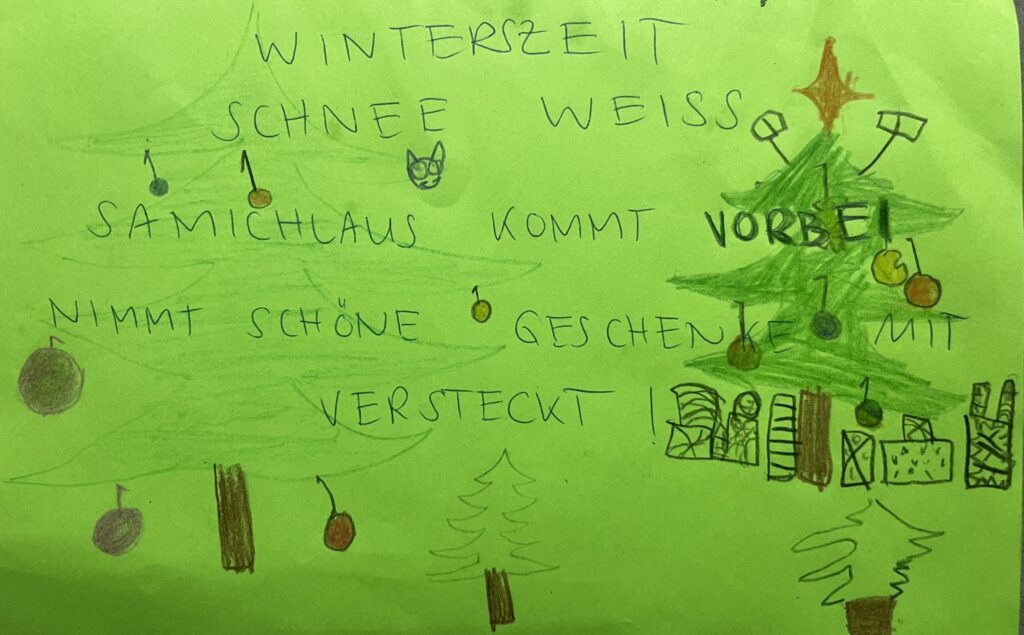 WINTERSZEIT
SCHNEE WEISS
SAMICHLAUS KOMMT VORBEI
NIMMT SCHÖNE GESCHENKE MIT
VERSTECKT !